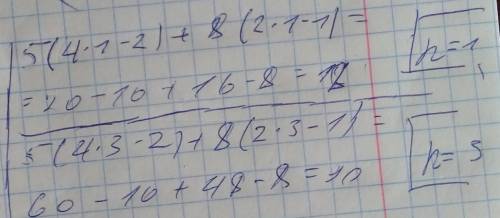 5(4·1-2)+8(2·1-1)= n=1
=20-10+16-8=18
5(4·3-2)+8(2·3-1)= n=3
60-10+48-8=90